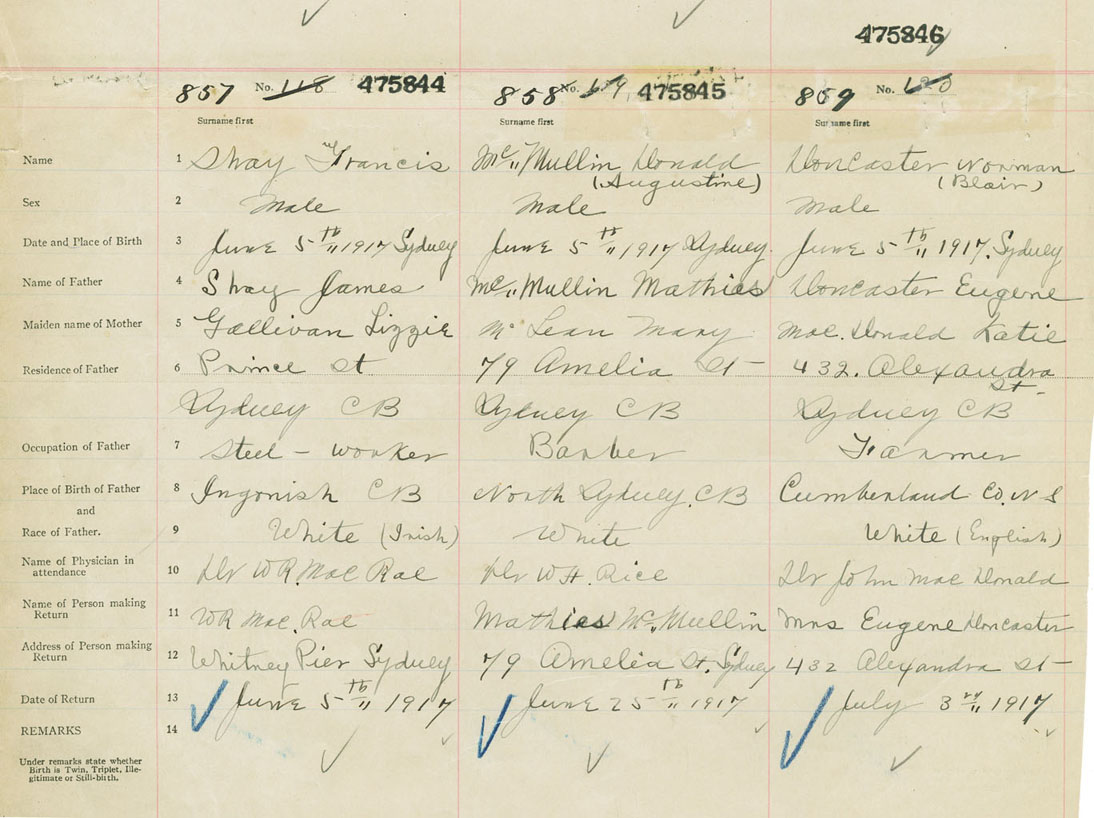 475846
857 No. 118 475844 858 No. 119 475845 859 No. 120
Surname first Surname first Surname first
Name 1 Shay Francis Mc Mullin Donald Doncaster Norman
(Augustine) (Blair)
Sex 2 Male Male Male
Date and Place of Birth 3 June 5th 1917 Sydney June 5th 1917 Sydney. June 5th 1917. Sydney
Name of Father 4 Shay James Mc Mullin Mathias Doncaster Eugene
Maiden name of Mother 5 Gallivan Lizzie Mc Lean Mary Mac. Donald Katie
Residence of Father 6 Prince St 79 Amelia St 432. Alexandra
St.
Sydney CB Sydney CB Sydney CB
Occupation of Father 7 Steel - worker Barber Farmer
Place of Birth of Father 8 Ingonish CB North Sydney. CB Cumberland Co. N S
and
Race of Father. 9 White (Irish) White White (English)
Name of Physician in
attendance 10 Dr W R. Mac Rae Dr W H. Rice Dr John Mac Donald
Name of Person making
Return 11 W R Mac. Rae Mathias Mc. Mullin Mrs Eugene Doncaster
Address of Person making
Return 12 Whitney Pier Sydney 79 Amelia St. Sydney 432 Alexandra St
Date of Return 13 June 5th 1917 June 25th 1917 July 3rd 1917
REMARKS 14
Under remarks state whether
Birth is Twin, Triplet, Ille-
gitimate or Still-birth.